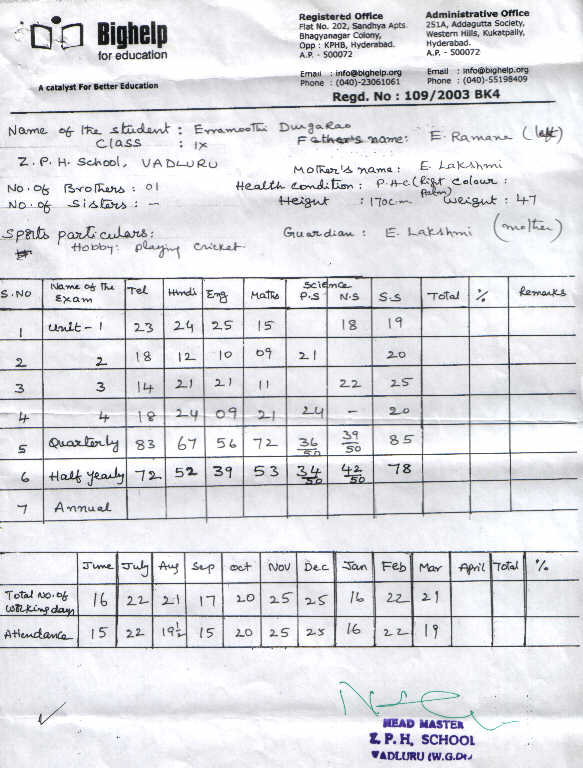 Bighelp
for education
A catalyst For Better Education
Registered Office
Flat No. 202, Sandhya Apts.
Bhagyanagar Colony,
Opp : KPHB, Hyderabad.
A.P. - 500072
Email : info@bighelp.org
Phone : (040)-23061061
Administrative Office
251A, Addagutta Society,
Western Hills, Kukatpally,
Hyderabad.
A.P. - 500072
Email : info@bighelp.org
Phone : (040)-55198409
Regd. No : 109/2003 BK4
Name of the student : Erramoothi DurgaRao
Class : IX
Father's name: E. Ramana (left)
Z.P.H. School, VADLURU
Mother's name: E. Lakshmi
No. of Brothers : 01
Health Condition : P.H.C (Right Palm) Colour :
No. of Sisters : -
Height : 170c.m Weight : 47
Sports particulars:
Guardian : E. Lakshmi (mother)
Hobby: playing cricket
S.NO Name of the Exam Tel Hindi Eng Maths Science P.S N.S S.S Total % Remarks
1 Unit - 1 23 24 25 15 18 19
2 2 18 12 10 09 21 20
3 3 14 21 21 11 22 25
4 4 18 24 09 21 24 - 20
5 Quarterly 83 67 56 72 36/50 39/50 85
6 Half Yearly 72 52 39 53 34/50 42/50 78
7 Annual
June July Aug Sep Oct Nov Dec Jan Feb Mar April Total %
Total No. of Working days 16 22 21 17 20 25 25 16 22 21
Attendance 15 22 19½ 15 20 25 25 16 22 19
HEAD MASTER
Z. P. H. SCHOOL
VADLURU (W.G.Dt.)